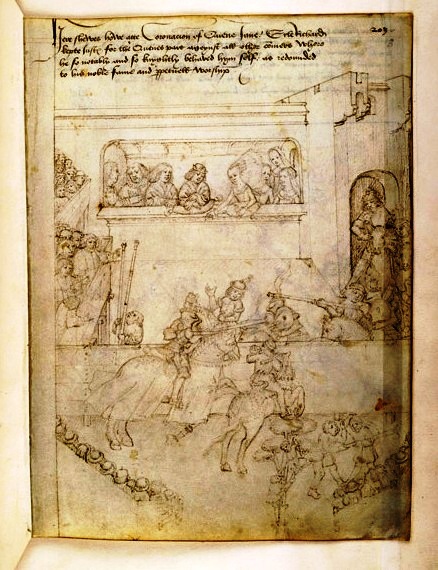 Here shewes howe atte Coronacion of Quene Jane / Erle Richard
kepte Justes for the Quenes part ageynst all other comers Where
he so notably and so knyghtly behaved hym self / as redounded
to his noble fame and perpetuell worship